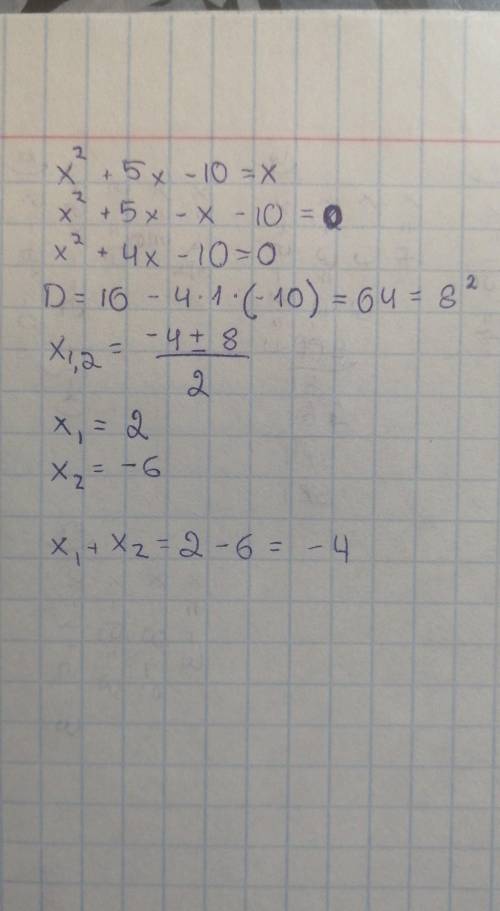 x² + 5x - 10 = x
x² + 5x - x - 10 = 0
x² + 4x - 10 = 0
D = 16 - 4 · 1 · (-10) = 64 = 8²
x₁,₂ = (-4 ± 8) / 2
x₁ = 2
x₂ = -6
x₁ + x₂ = 2 - 6 = -4